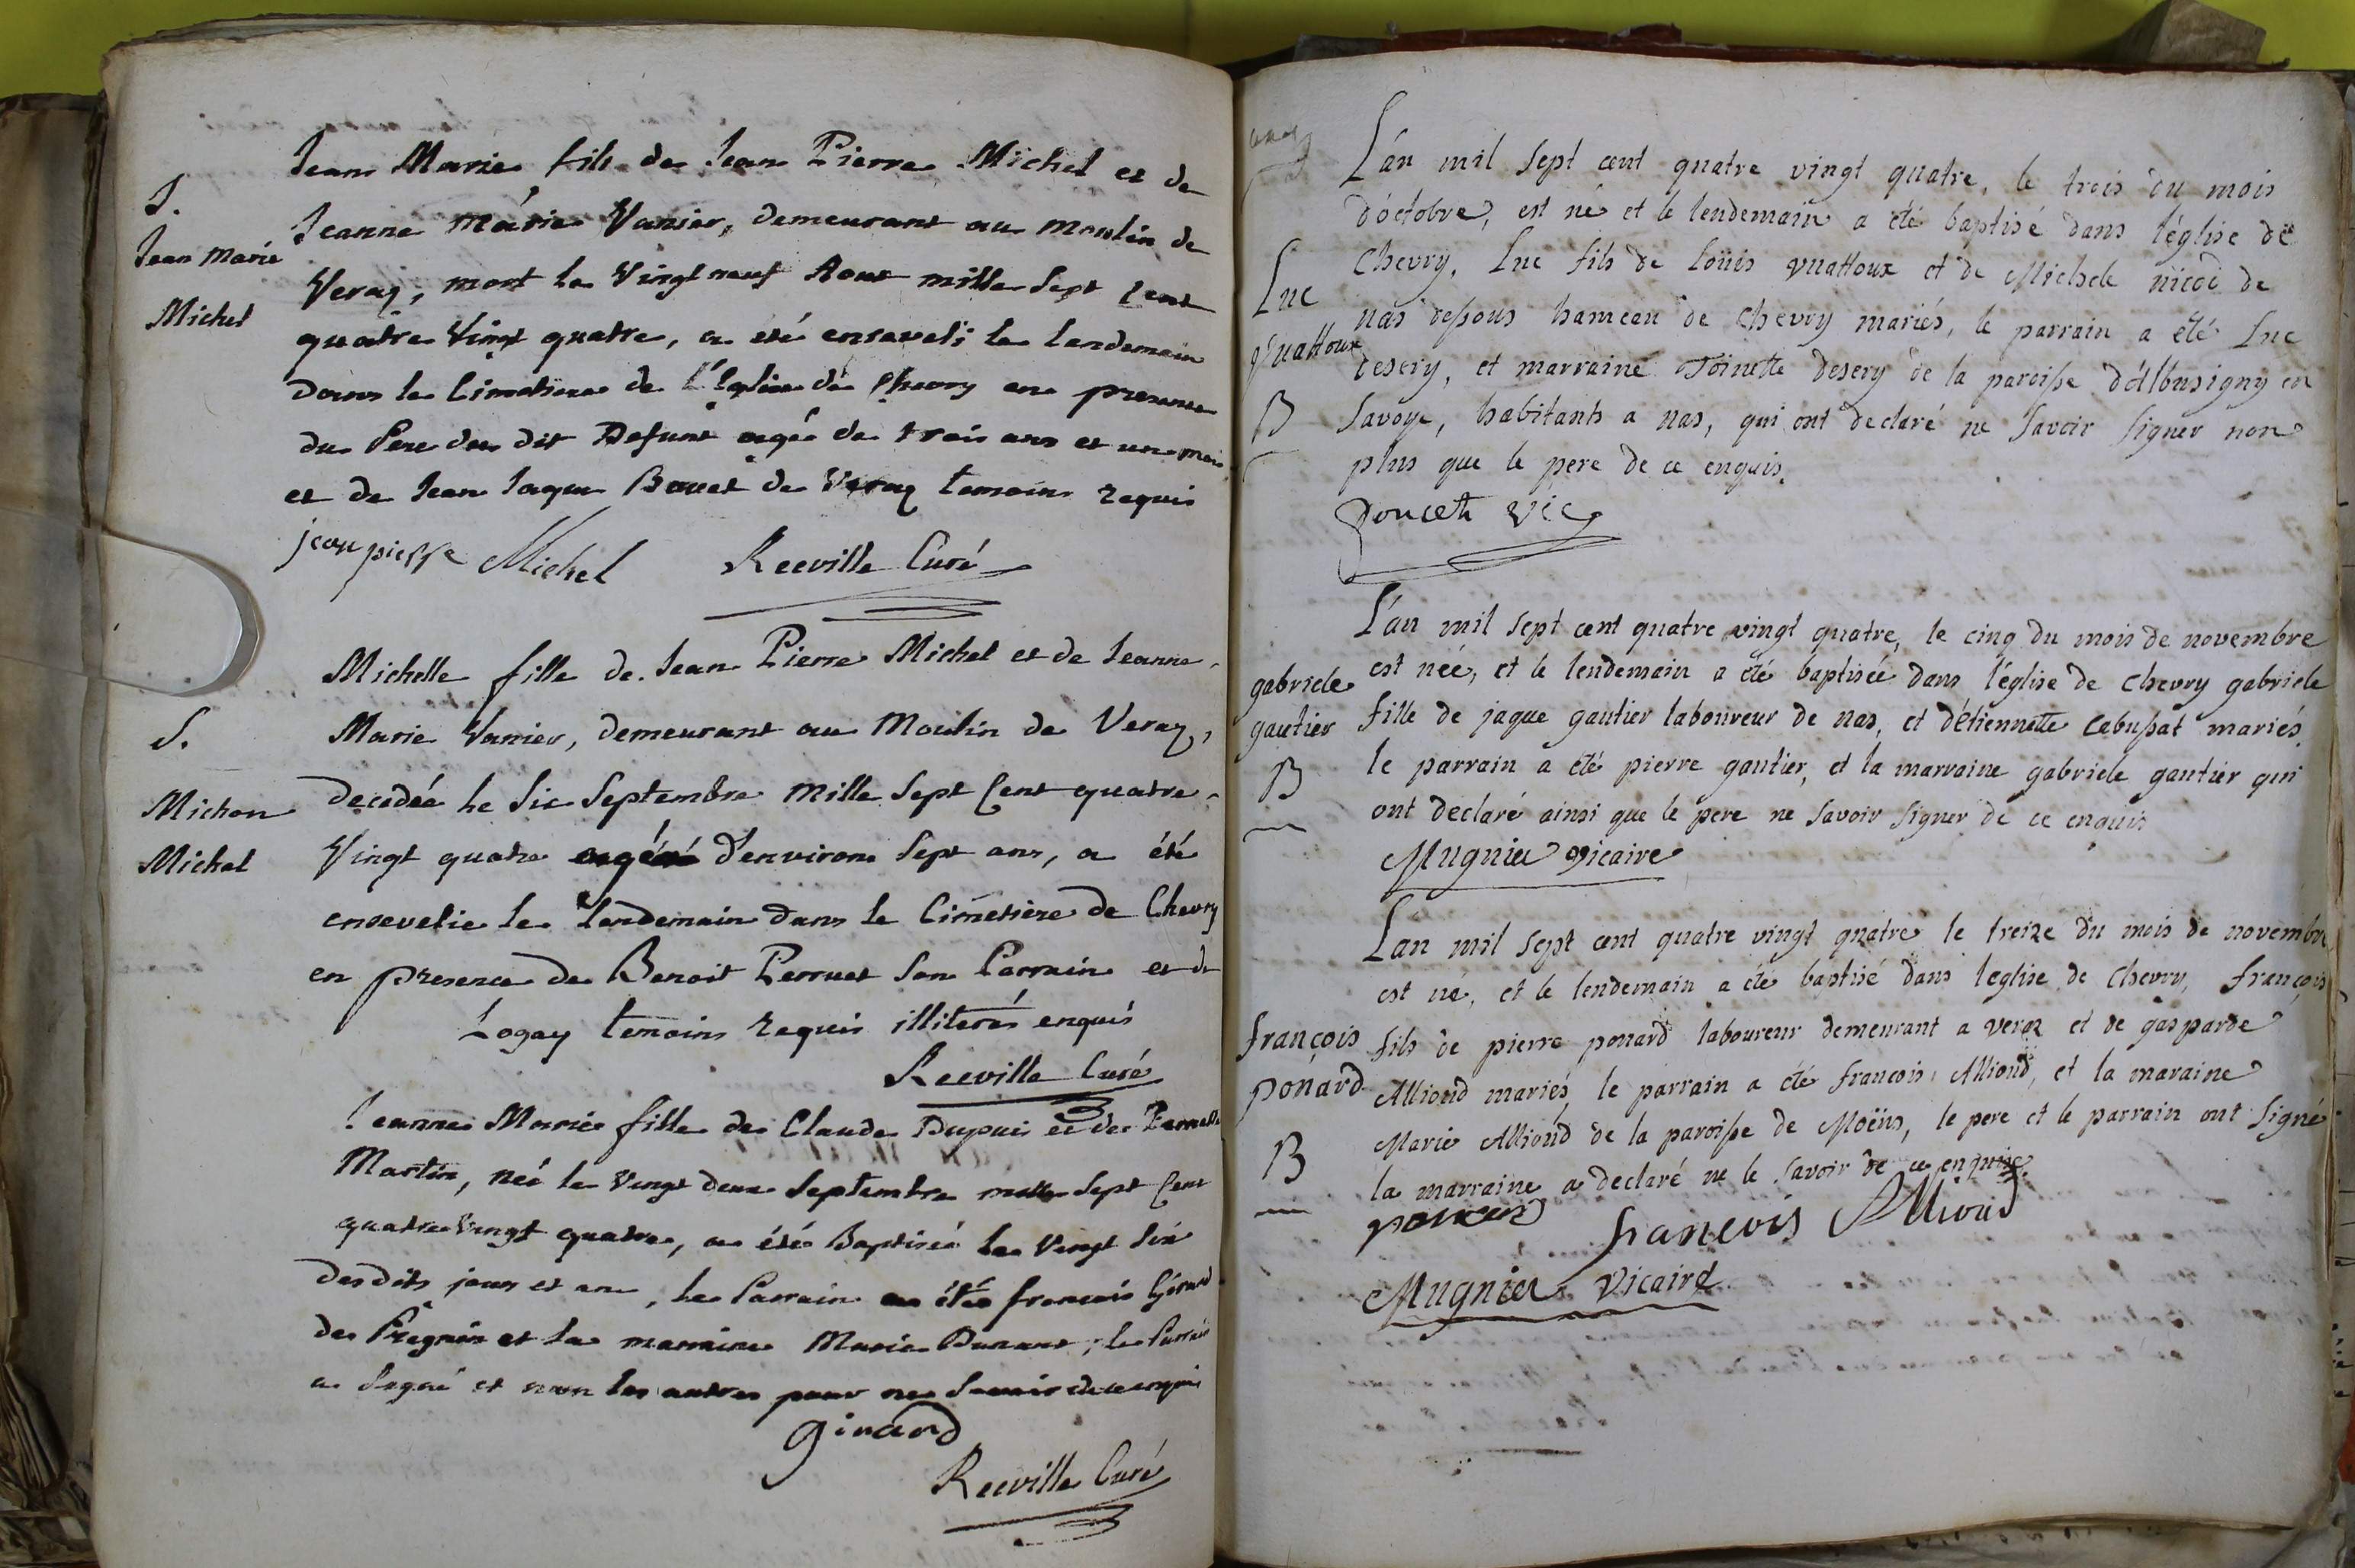 S.
Jean Marie
Michel
Jean Marie fils de Jean Pierre Michel et de
Jeanne Marie Vanier, demeurant au Moulin de
Veraz, mort le Vingt neuf Aout mille Sept Cent
quatre Vingt quatre, a eté enseveli le lendemain
dans le Cimetiere de L'Eglise de Chevry en presence
du Pere du dit Defunt agé de trois ans et un mois
et de Jean Jaque Bovet de Veraz temoins requis
jean pierre Michel Reeville Curé
S.
Michon
Michel
Michelle fille de Jean Pierre Michel et de Jeanne
Marie Vanier, demeurant au Moulin de Veraz,
decedée le Six Septembre mille Sept Cent quatre
Vingt quatre agée d'environ Sept ans, a été
ensevelie le lendemain dans le Cimetière de Chevry
en presence de Benoit Perruet Son Parrain et de
Logay temoins requis illiterés enquis
Reeville Curé
Jeanne Marie fille de Claude Dupuis et de Pernette
Martin, née le Vingt deux Septembre mille Sept Cent
quatre Vingt quatre, a été Baptisée le Vingt Six
des dits jour et an, le Parrain a été francois Girard
de Pregnin et la marraine Marie Dunant, le Parrain
a Signé et non les autres pour ne Savoir de ce enquis
girard
Reeville Curé
Luc
Vuattoux
B
L'an mil sept cent quatre vingt quatre, le trois du mois
d'octobre, est né et le lendemain a été baptisé dans l'église de
Chevry, Luc fils de Loüis Vuattoux et de Michele nicod de
nas dessous hameau de Chevry mariés, le parrain a été Luc
desery, et marraine Toinette desery de la paroisse d'albusigny en
Savoye, habitants a nas, qui ont declaré ne savoir signer non
plus que le pere de ce enquis.
Doncet vic
gabriele
gautier
B
L'an mil sept cent quatre vingt quatre, le cinq du mois de novembre
est née, et le lendemain a été baptisée dans l'église de chevry gabriele
fille de jaque gautier laboureur de nas, et d'étiennette Cabussat mariés,
le parrain a été pierre gautier, et la marraine gabriele gautier qui
ont declaré ainsi que le pere ne savoir signer de ce enquis
Mugnier vicaire
françois
ponard
B
Lan mil sept cent quatre vingt quatre le treize du mois de novembre
est né, et le lendemain a été baptisé dans leglise de chevry, françois
fils de pierre ponard laboureur demeurant a veraz et de gasparde
Alliond mariés, le parrain a été francois Alliond, et la maraine
Marie Alliond de la paroisse de Moëns, le pere et le parrain ont signé
la marraine a declaré ne le savoir de ce enquise
ponard francois Alliond
Mugnier Vicaire